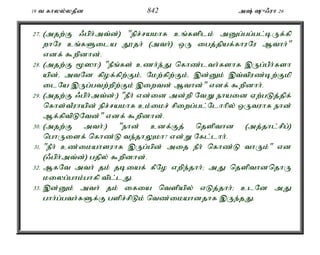 19 வ காலல்லதீன் 842 அஷ் ஷுஃரா 26
27. (அதற்கு ஃபிர்அவ்ன்) "நிச்சயமாக உங்களிடம் அனுப்பப்பட்டிருக்கி
றாரே உங்களுடைய தூதர் (அவர்) ஒரு பைத்தியக்காரரே ஆவார்"
எனக் கூறினான்.
28. (அதற்கு மூஸா:) "நீங்கள் உணர்ந்து கொண்டவர்களாக இருப்பீர்களா
யின், அவனே கிழக்கிற்கும், மேற்கிற்கும், இன்னும் இவ்விரண்டிற்குமி
டையே இருப்பவற்றிற்கும் இறைவன் ஆவான்" எனக் கூறினார்.
29. (அதற்கு ஃபிர்அவ்ன்:) "நீர் என்னை அன்றி வேறு நாயனை ஏற்படுத்திக்
கொள்வீராயின் நிச்சயமாக உம்மைச் சிறைப்பட்டோரில் ஒருவராக நான்
ஆக்கிவிடுவேன்" எனக் கூறினான்.
30. (அதற்கு அவர்:) "நான் உனக்குத் தெளிவான (அத்தாட்சிப்)
பொருளைக் கொண்டு வந்தாலுமா? என்று கேட்டார்.
31. "நீர் உண்மையாளராக இருப்பின் அதை நீர் கொண்டு வாரும்" என
(ஃபிர்அவ்ன்) பதில் கூறினான்.
32. ஆகவே அவர் தம் தடியைக் கீழே எறிந்தார்; அது தெளிவானதொரு
மலைப்பாம்பாகி விட்டது.
33. இன்னும் அவர் தம் கையை வெளியில் எடுத்தார்; உடனே அது
பார்ப்பவர்களுக்கு பளிச்சிடும் வெண்மையானதாக இருந்தது.